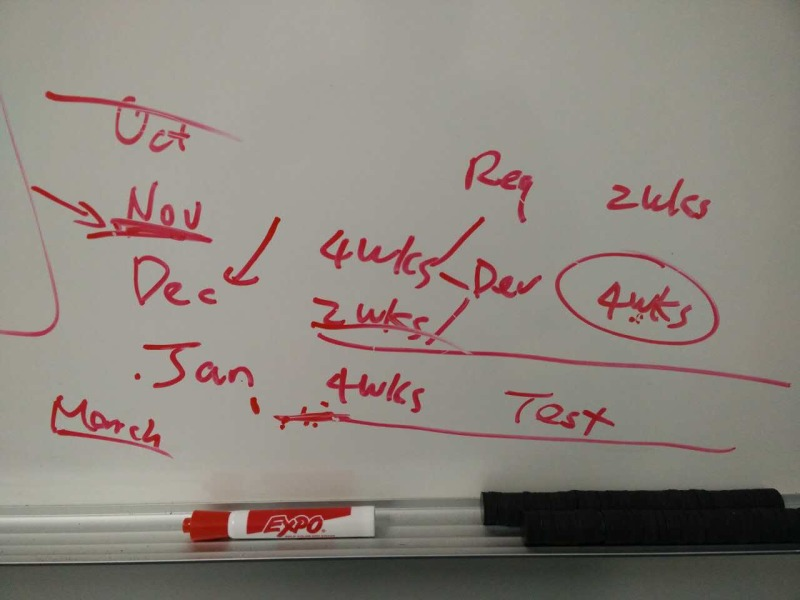 Oct
Nov
Dec
Jan
March
Req 2wks
4wks Dev 4wks
2wks
4wks Test
EXPO